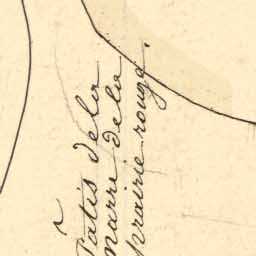 Pâtis de la
marre de la
prairie rouge.